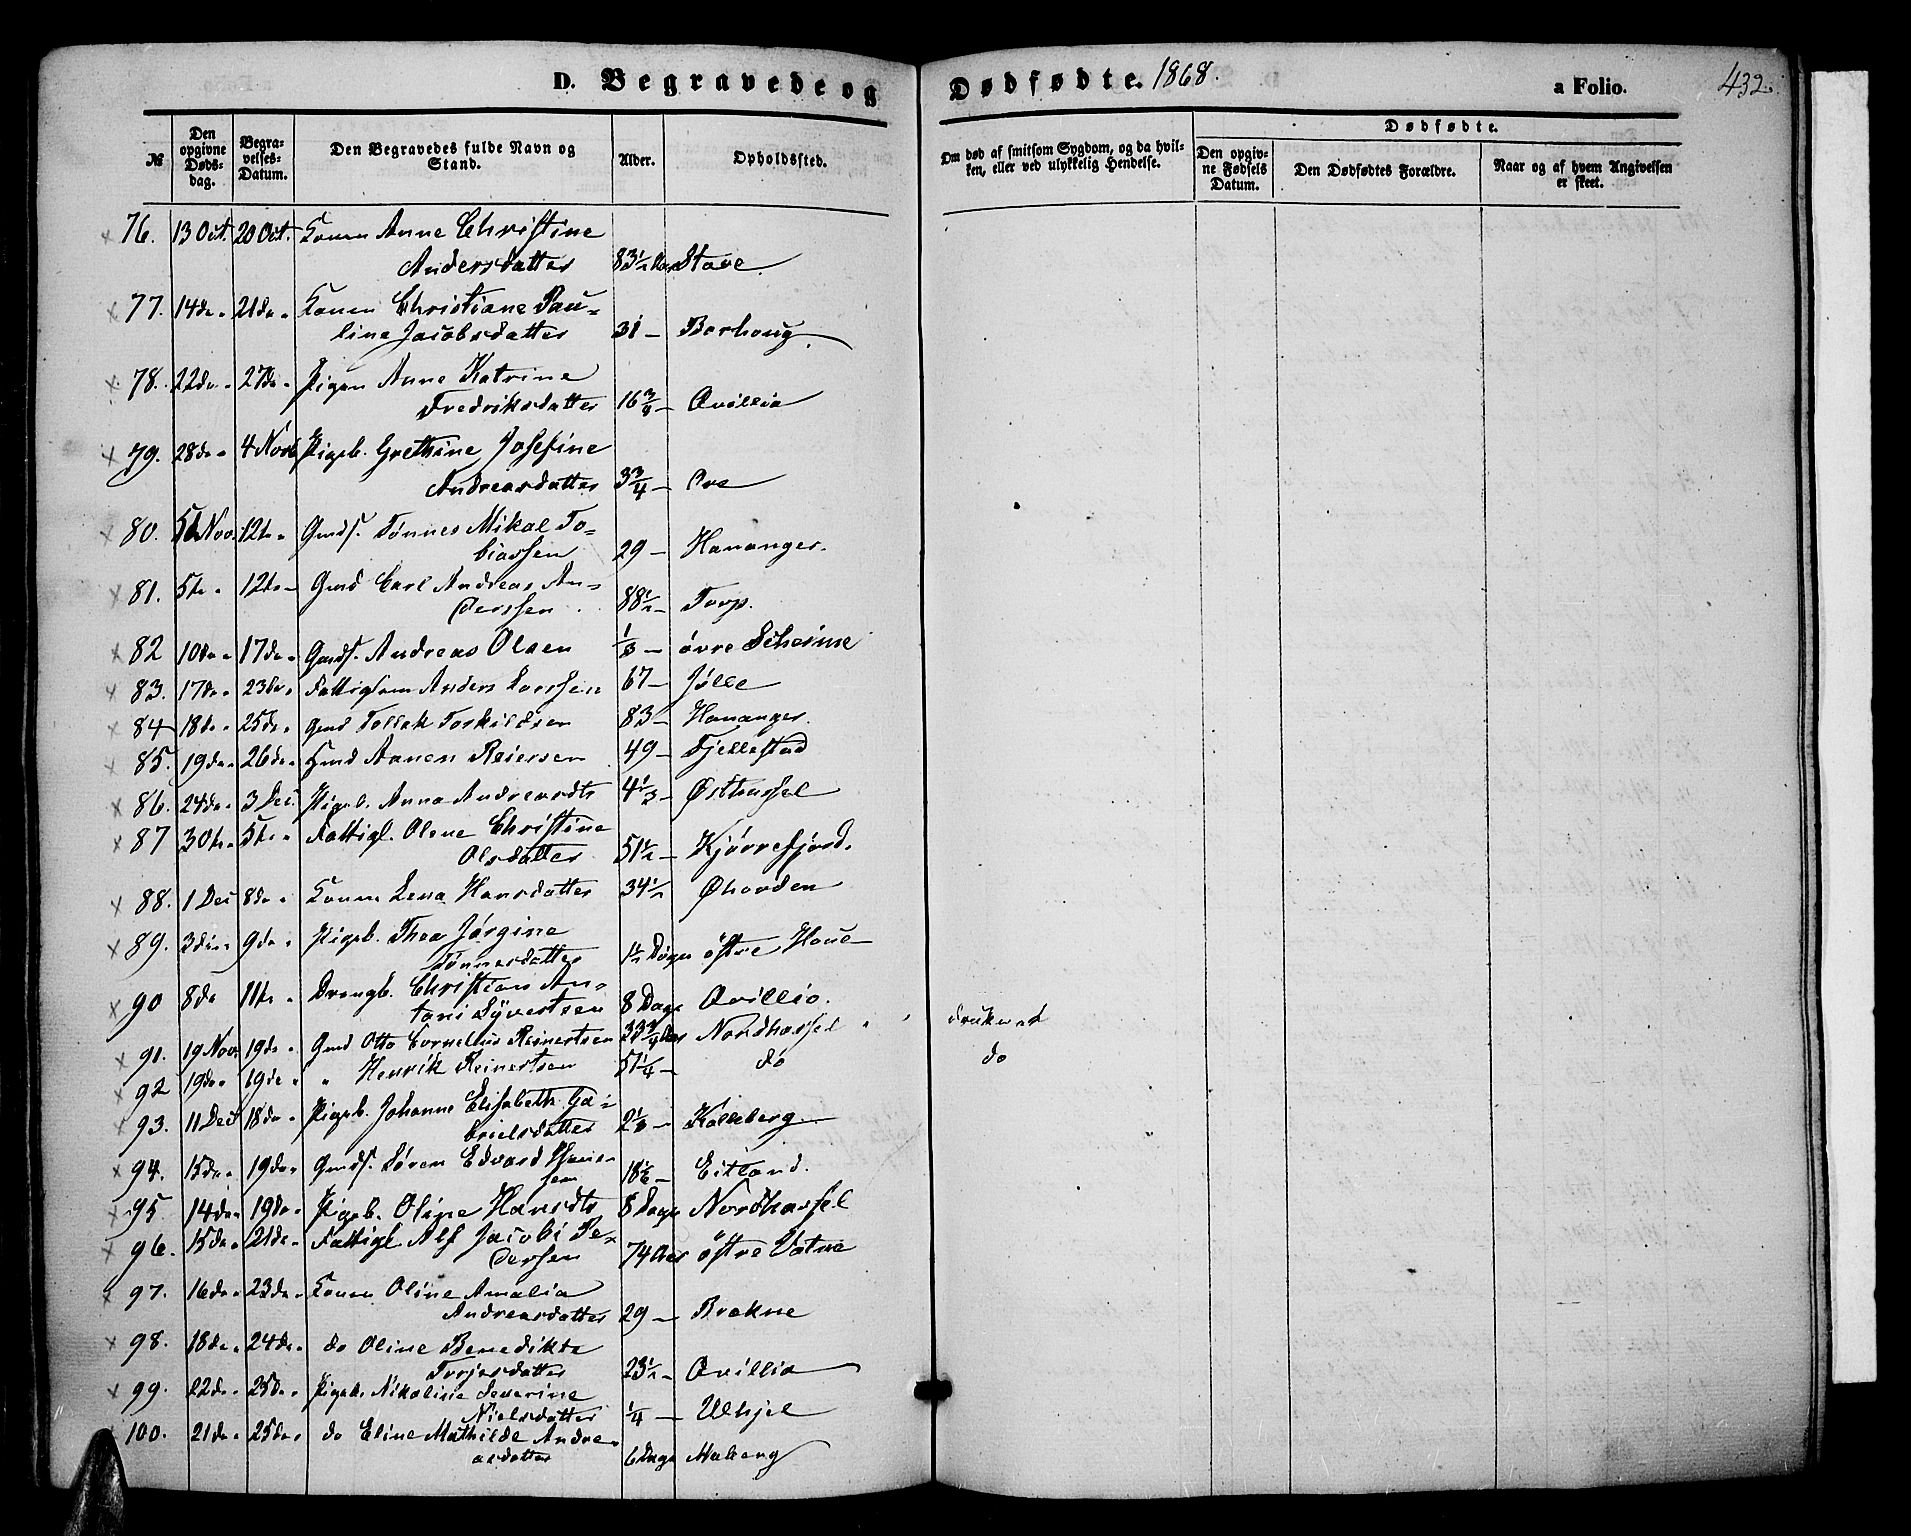 D. Begravede og Dødfødte. 1868. a Folio. 432.
№
Den opgivne Døds-dag.
Begra-velses-Datum.
Den Begravedes fulde Navn og Stand.
Alder.
Opholdssted.
Om død af smitsom Sygdom, og da hvil-ken, eller ved ulykkelig Hendelse.
Dødfødte.
Den opgiv-ne Fødsels Datum.
Den Dødfødtes Forældre.
Naar og af hvem Angivelsen er skeet.
76. 13 Oct. 20 Oct. Konen Anne Christine
Andersdatter 83 1/2 Aar Stave.
77. 14 do " 21 do " Konen Christiane Pau-
line Jacobsdatter 31 — Borhoug
78. 22 do " 27 do " Pigen Anne Katrine
Fredriksdatter 16 3/4 — Qvillia
79. 28 do " 4 Novb Pigeb. Grethine Josefine
Andreasdatter 3 3/4 — Ore
80. 5 Nov. 12 te " Gmds. Tønnes Mikal To-
biassen 29 — Hananger.
81. 5 te " 12 te — Gmd Carl Andreas An-
derssen 88 1/2 — Torp.
82 10 do " 17 do " Gmds. Andreas Olsen 1/3 — øvre Scheime
83. 17 do " 23 do " Fattiglem Anders Larssen 67 — Jølle
84 18 do " 25 do " Gmd Tollak Torkildsen 83 — Hananger.
85. 19 do " 26 do " Gmd Aanen Reiersen 49 — Fjellestad
86. 24 do " 3 Dec Pigeb. Anna Andreasdtr 4 1/3 — Østhassel
87 30 te " 5 te " Fattigl. Olene Christine
Olsdatter 51 1/2 — Kjørrefjord.
88. 1 Dec 8 do " Konen Lena Hansdatter 34 1/2 Øhorden
89. 3 die " 9 de " Pigeb. Thea Jørgine
Tønnesdatter 1 1/2 Døgn østre Haue
90 8 de 11 te " Drengb. Christian An-
toni Syvertsen 8 Dage Qvillio.
91. 19 Nov. 19 de " Gmd Otto Cornelius Reinertsen 33 3/4 Aar Nordhassel " " druknet
92 19 de " 19 de " " Henrik Reinertsen 51 1/4 — do do
93. 11 Dec 18 do " Pigeb. Johanne Elisabeth Ga-
brielsdatter 2 1/3 — Kalleberg
94. 15 do " 19 do " Gmds. Søren Edvard Hans-
sen 18 1/2 — Eitland.
95 14 de " 19 de " Pigeb. Oline Hansdtr 8 Dage Nordhassel
96. 15 de " 21 de " Fattigl Alf Jacobi Pe-
dersen 74 Aar østre Vatne
97. 16 de " 23 de " Konen Oline Amalia
Andreasdatter 29 — Brekne
98. 18 de " 24 de " do Oline Benedikte
Torjesdatter 23 1/2 — Qvillia
99. 22 de " 25 de " Pigeb. Nikoline Severine
Nielsdatter 1/4 — Ulhjel
100. 21 de " 25 de " do Eline Mathilde Andre-
asdatter 6 Dage Maberg